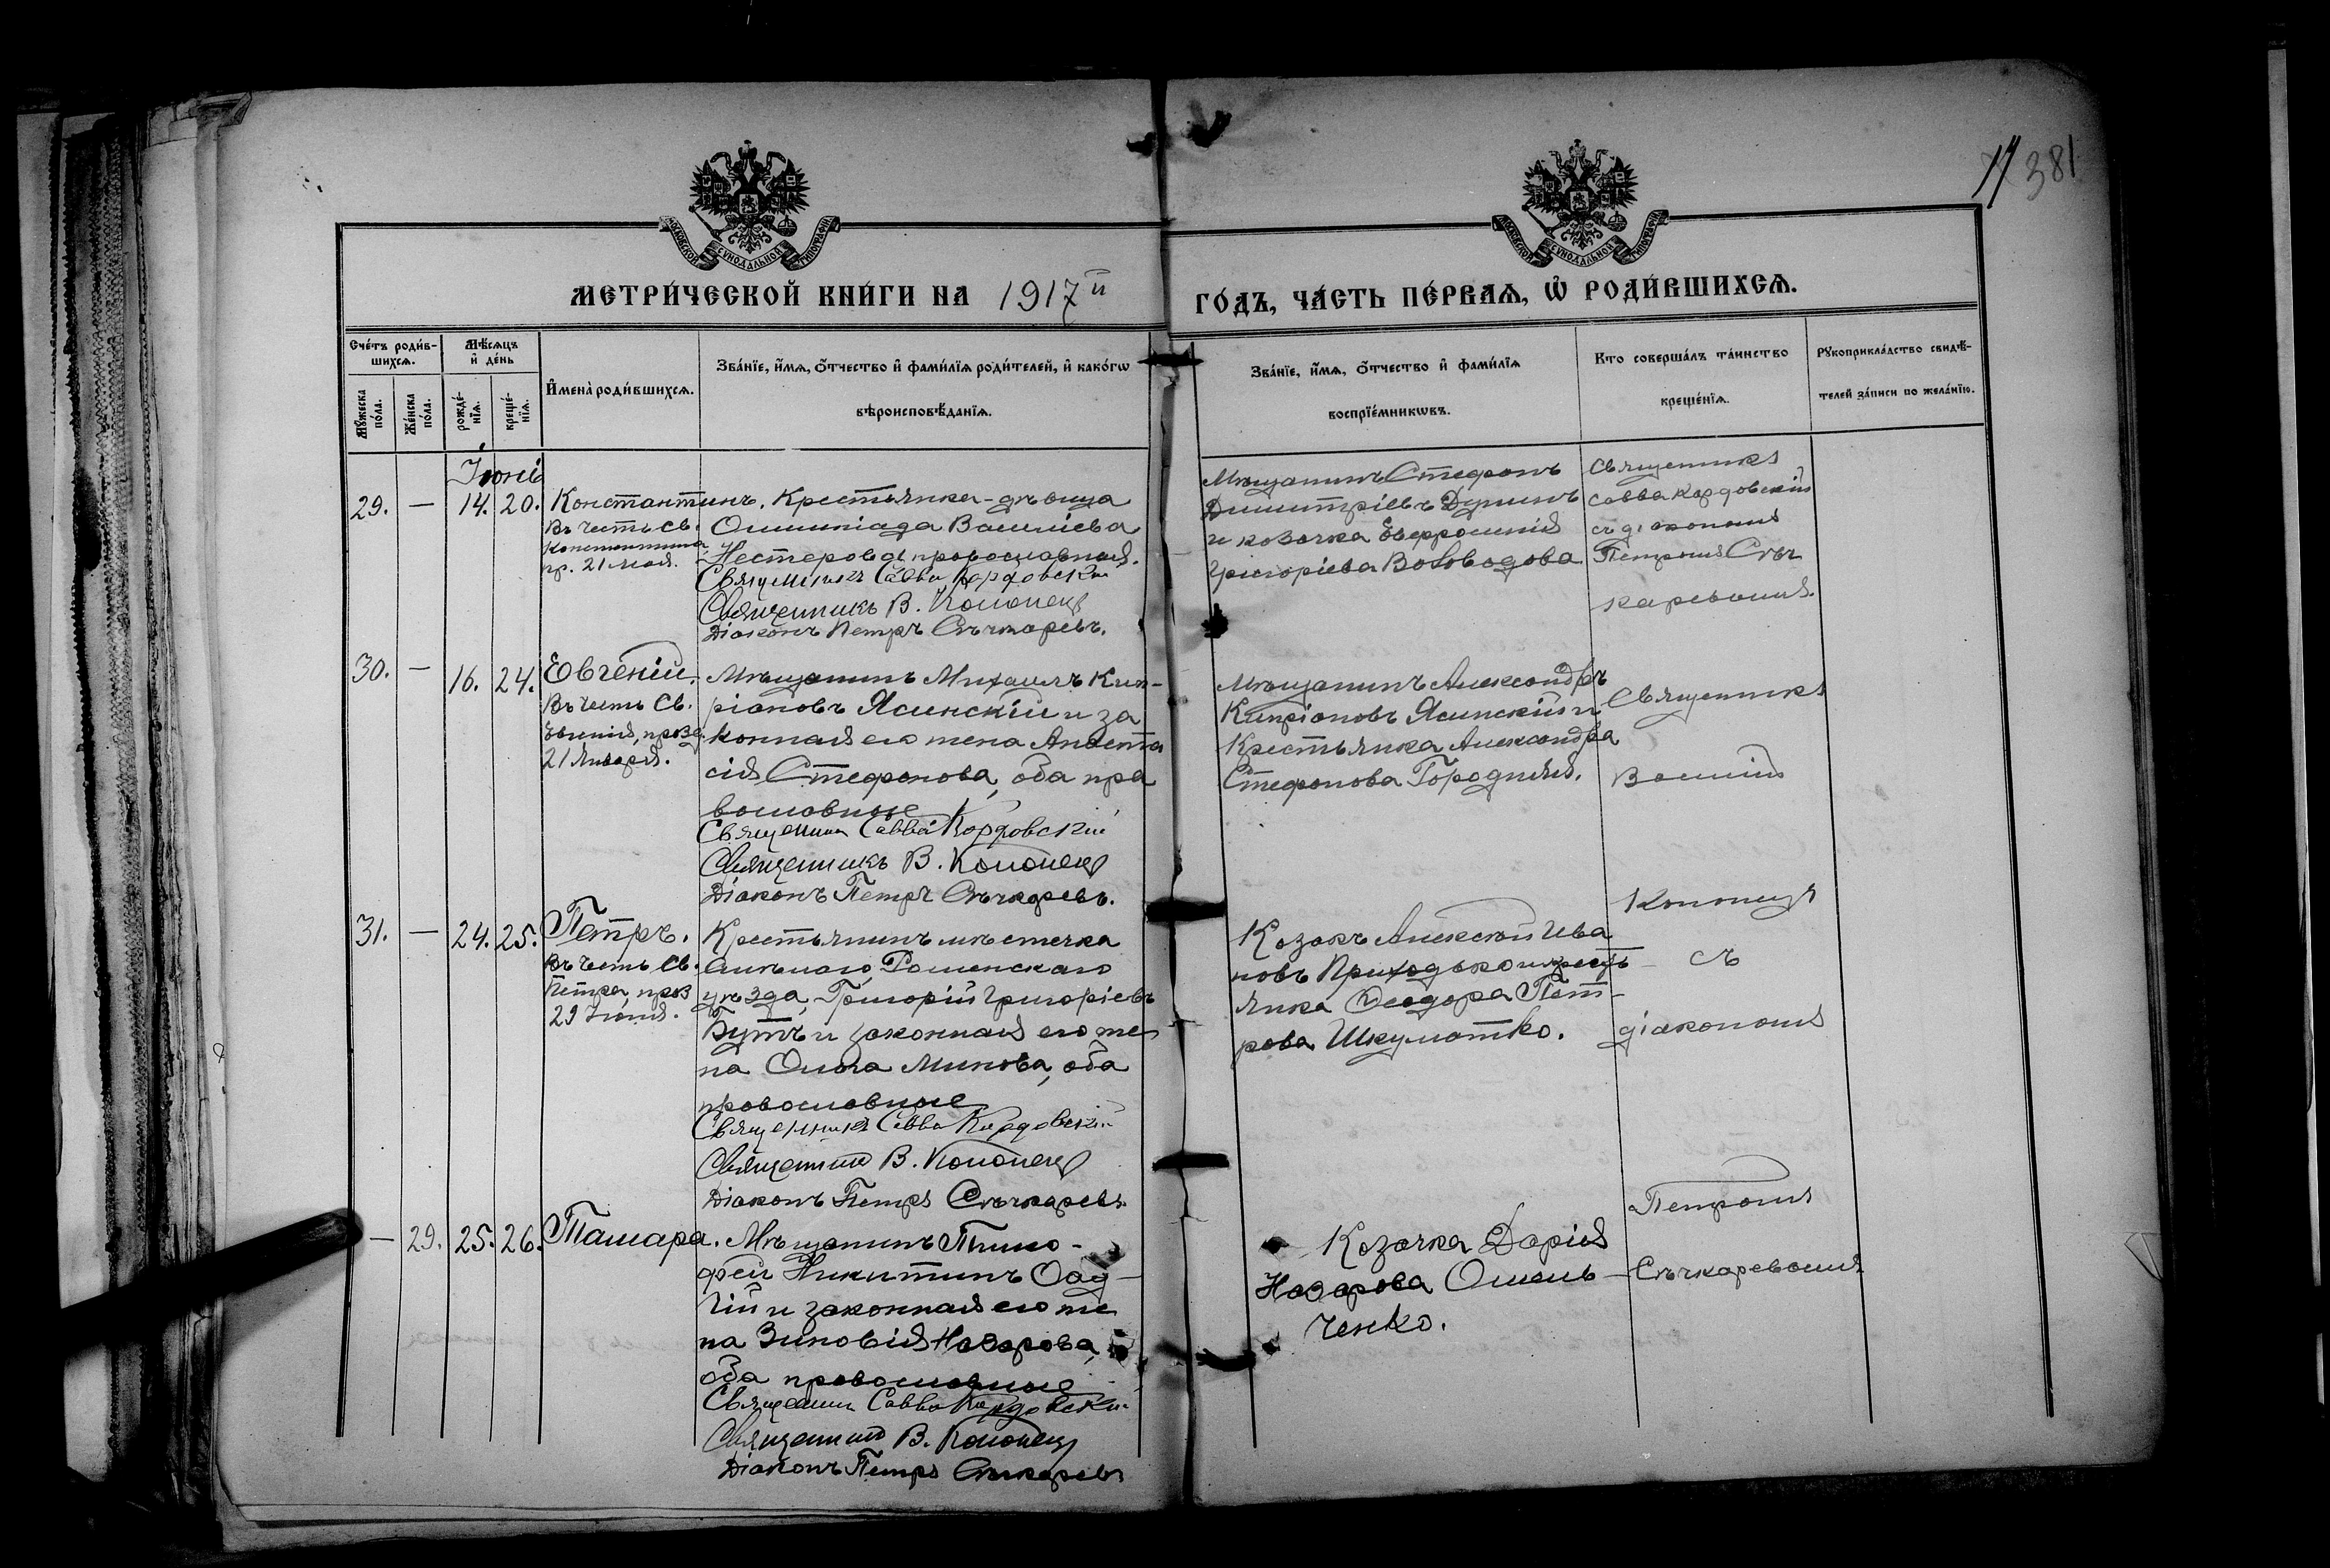 11 381
МОСКОВСКОЙ СѴНОДАЛЬНОЙ ТИПОГРАФІИ
МОСКОВСКОЙ СѴНОДАЛЬНОЙ ТИПОГРАФІИ
МЕТРИ́ЧЕСКОЙ КНИ́ГИ НА 1917й
ГО́ДЪ, ЧА́СТЬ ПЕ́РВАѦ, Ѡ҆ РОДИ́ВШИХСѦ.
Сче́тъ роди́в-
шихсѧ.
Мѣ́сѧцъ
и҆ де́нь
Мꙋ́жеска
по́ла.
Же́нска
по́ла.
рожде́-
нїѧ.
креще́-
нїѧ.
И҆мена̀ роди́вшихсѧ.
Зва́нїе, и҆́мѧ, ѻ҆́тчество и҆ фами́лїѧ роди́телей, и҆ како́гѡ
вѣроисповѣ́данїѧ.
Зва́нїе, и҆́мѧ, ѻ҆́тчество и҆ фами́лїѧ
воспрїе́мникѡвъ.
Кто соверша́лъ та́инство
креще́нїѧ.
Рꙋкоприкла́дство свидѣ́-
телей за́писи по жела́нїю.
Іюнь
29. — 14. 20.
Константинъ.
Въ честь св.
Константина,
пр. 21 мая.
Крестьянка-дѣвица
Олимпіада Василіева
Нестерова, православная.
Священникъ Савва Кордовскій
Священникъ В. Кононец
Діаконъ Петръ Снѣчкаревъ.
Мѣщанинъ Стефанъ
Димитріевъ Дунинъ
и козачка Евфросинія
Григоріева Воловодова
Священникъ
Савва Кордовскій
съ діакономъ
Петромъ Снѣч
каревымъ.
30. — 16. 24.
Евгеній.
Въ честь св.
Евгенія, празд.
21 Января.
Мѣщанинъ Михаилъ Кип-
ріановъ Ясинскій и за
конная его жена Анаста
сія Стефанова, оба пра
вославные
Священник Савва Кордовскій
Священникъ В. Кононец
Діаконъ Петръ Снѣчкаревъ.
Мѣщанинъ Александръ
Кипріановъ Ясинскій и
Крестьянка Александра
Стефанова Городняя.
Священникъ
Василій
Кононецъ
съ
діакономъ
Петромъ
Снѣчкаревымъ
31. — 24. 25.
Петръ.
Въ честь св.
Петра, праз
29 Іюня.
Крестьянинъ мѣстечка
Смѣлаго, Роменскаго
уѣзда, Григорій Григоріевъ
Бутъ и законная его же
на Ольга Минова, оба
православные
Священникъ Савва Кордовскій
Священник В. Кононец
Діаконъ Петръ Снѣчкаревъ
Козакъ Алексѣй Ива
новъ Приходько и кресть-
янка Ѳеодора Пет-
рова Шкуматко.
— 29. 25. 26.
Тамара.
Мѣщанинъ Тимо-
фей Никитинъ Оад-
чій и законная его же
на Зиновія Назарова,
оба православные
Священник Савва Кордовскій
Священник В. Кононец
Діаконъ Петръ Снѣчкаревъ
Козачка Дарія
Назарова Омель-
ченко.